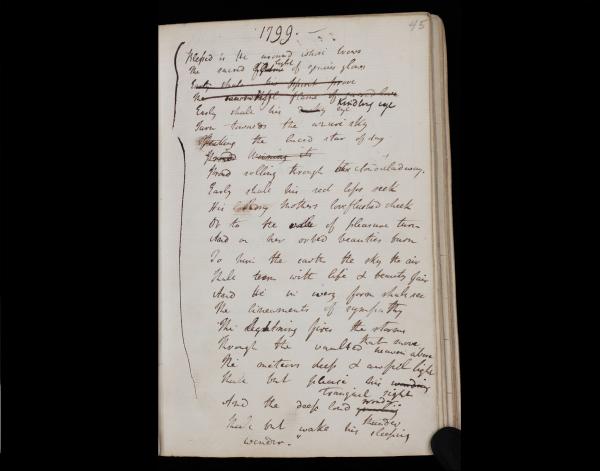 45
1799.
Blessed is the
The sacred light of genius glows
Early shall his spirit prove
The flame of sacred love
Early shall his kindling eye
Turn towards the azure sky
the lucid star of day
its
rolling through
Early shall his red lips seek
His Mothers loveflushed cheek
Or to the of pleasure turn
And on her orbed beauties burn
To him the earth the sky the air
Shall teem with life & beauty fair
And he in every form shall see
The lineaments of sympathy
The lightning fires the storms
that move
Through the vaulted heaven above
The meteors deep & awful light
Shall but please his
tranquil sight
And the deep loud
thunder
Shall but wake his sleeping
wonder."